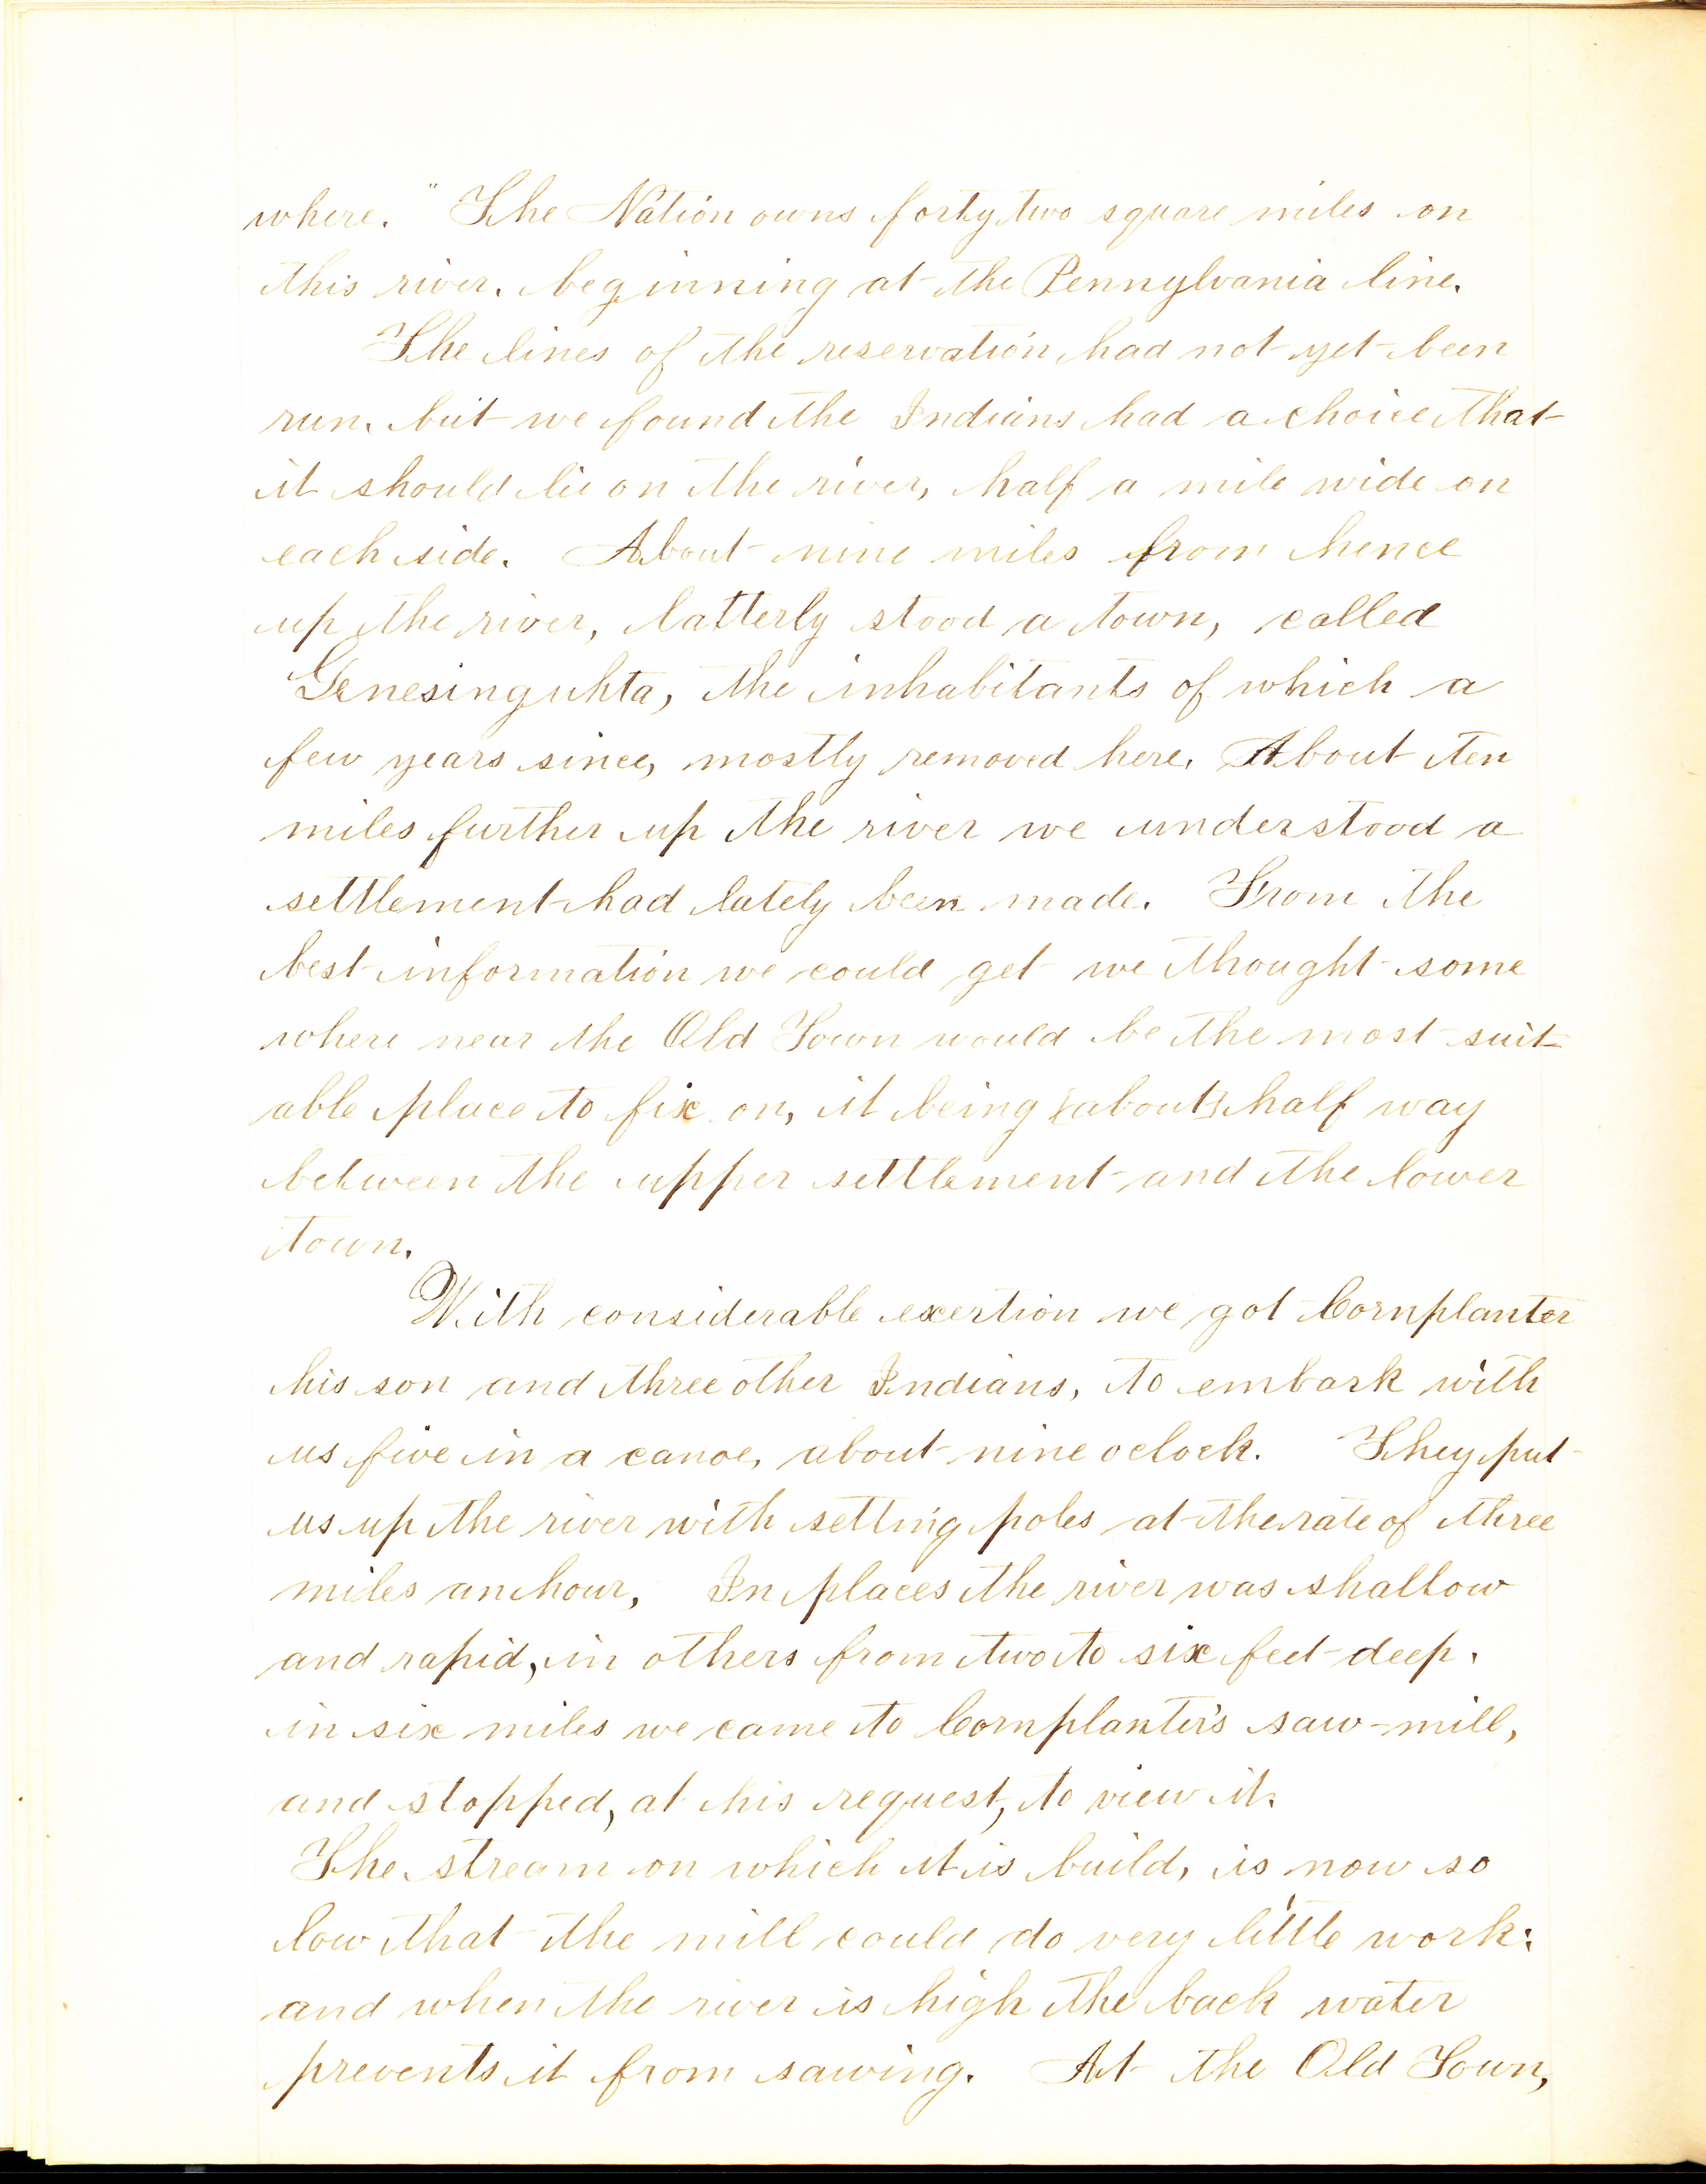 where." The Nation owns forty two square miles on
this river, beginning at the Pennylvania line.
The lines of the reservation had not yet been
run, but we found the Indians had a choice that
it should lie on the river, half a mile wide on
each side. About nine miles from hence
up the river, latterly stood a town, called
Genesinguhta, the inhabitants of which a
few years since, mostly removed here. About ten
miles further up the river we understood a
settlement had lately been made. From the
best information we could get we thought some
where near the Old Town would be the most suit-
able place to fix on, it being {about} half way
between the upper settlement and the lower
town.
With considerable exertion we got Cornplanter
his son and three other Indians, to embark with
us five in a canoe, about nine oclock. They put
us up the river with setting poles at the rate of three
miles an hour, In places the river was shallow
and rapid, in others from two to six feet deep.
in six miles we came to Cornplanter's saw-mill,
and stopped, at his request, to view it.
The stream on which it is build, is now so
low that the mill could do very little work:
and when the river is high the back water
prevents it from sawing. At the Old Town,